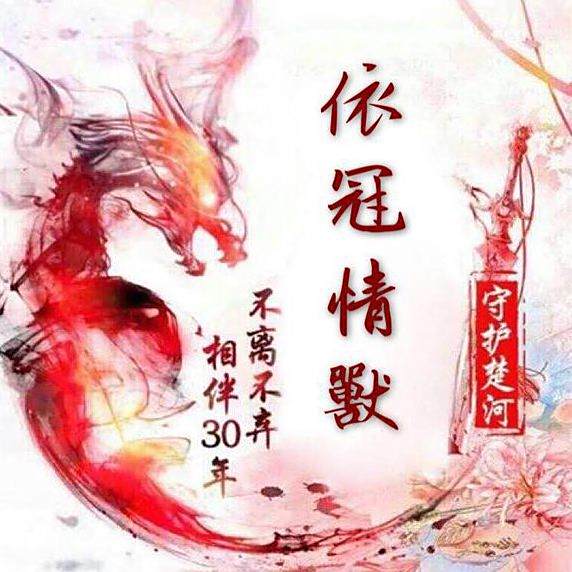 依冠情獸
守护楚河
不离不弃
相伴30年